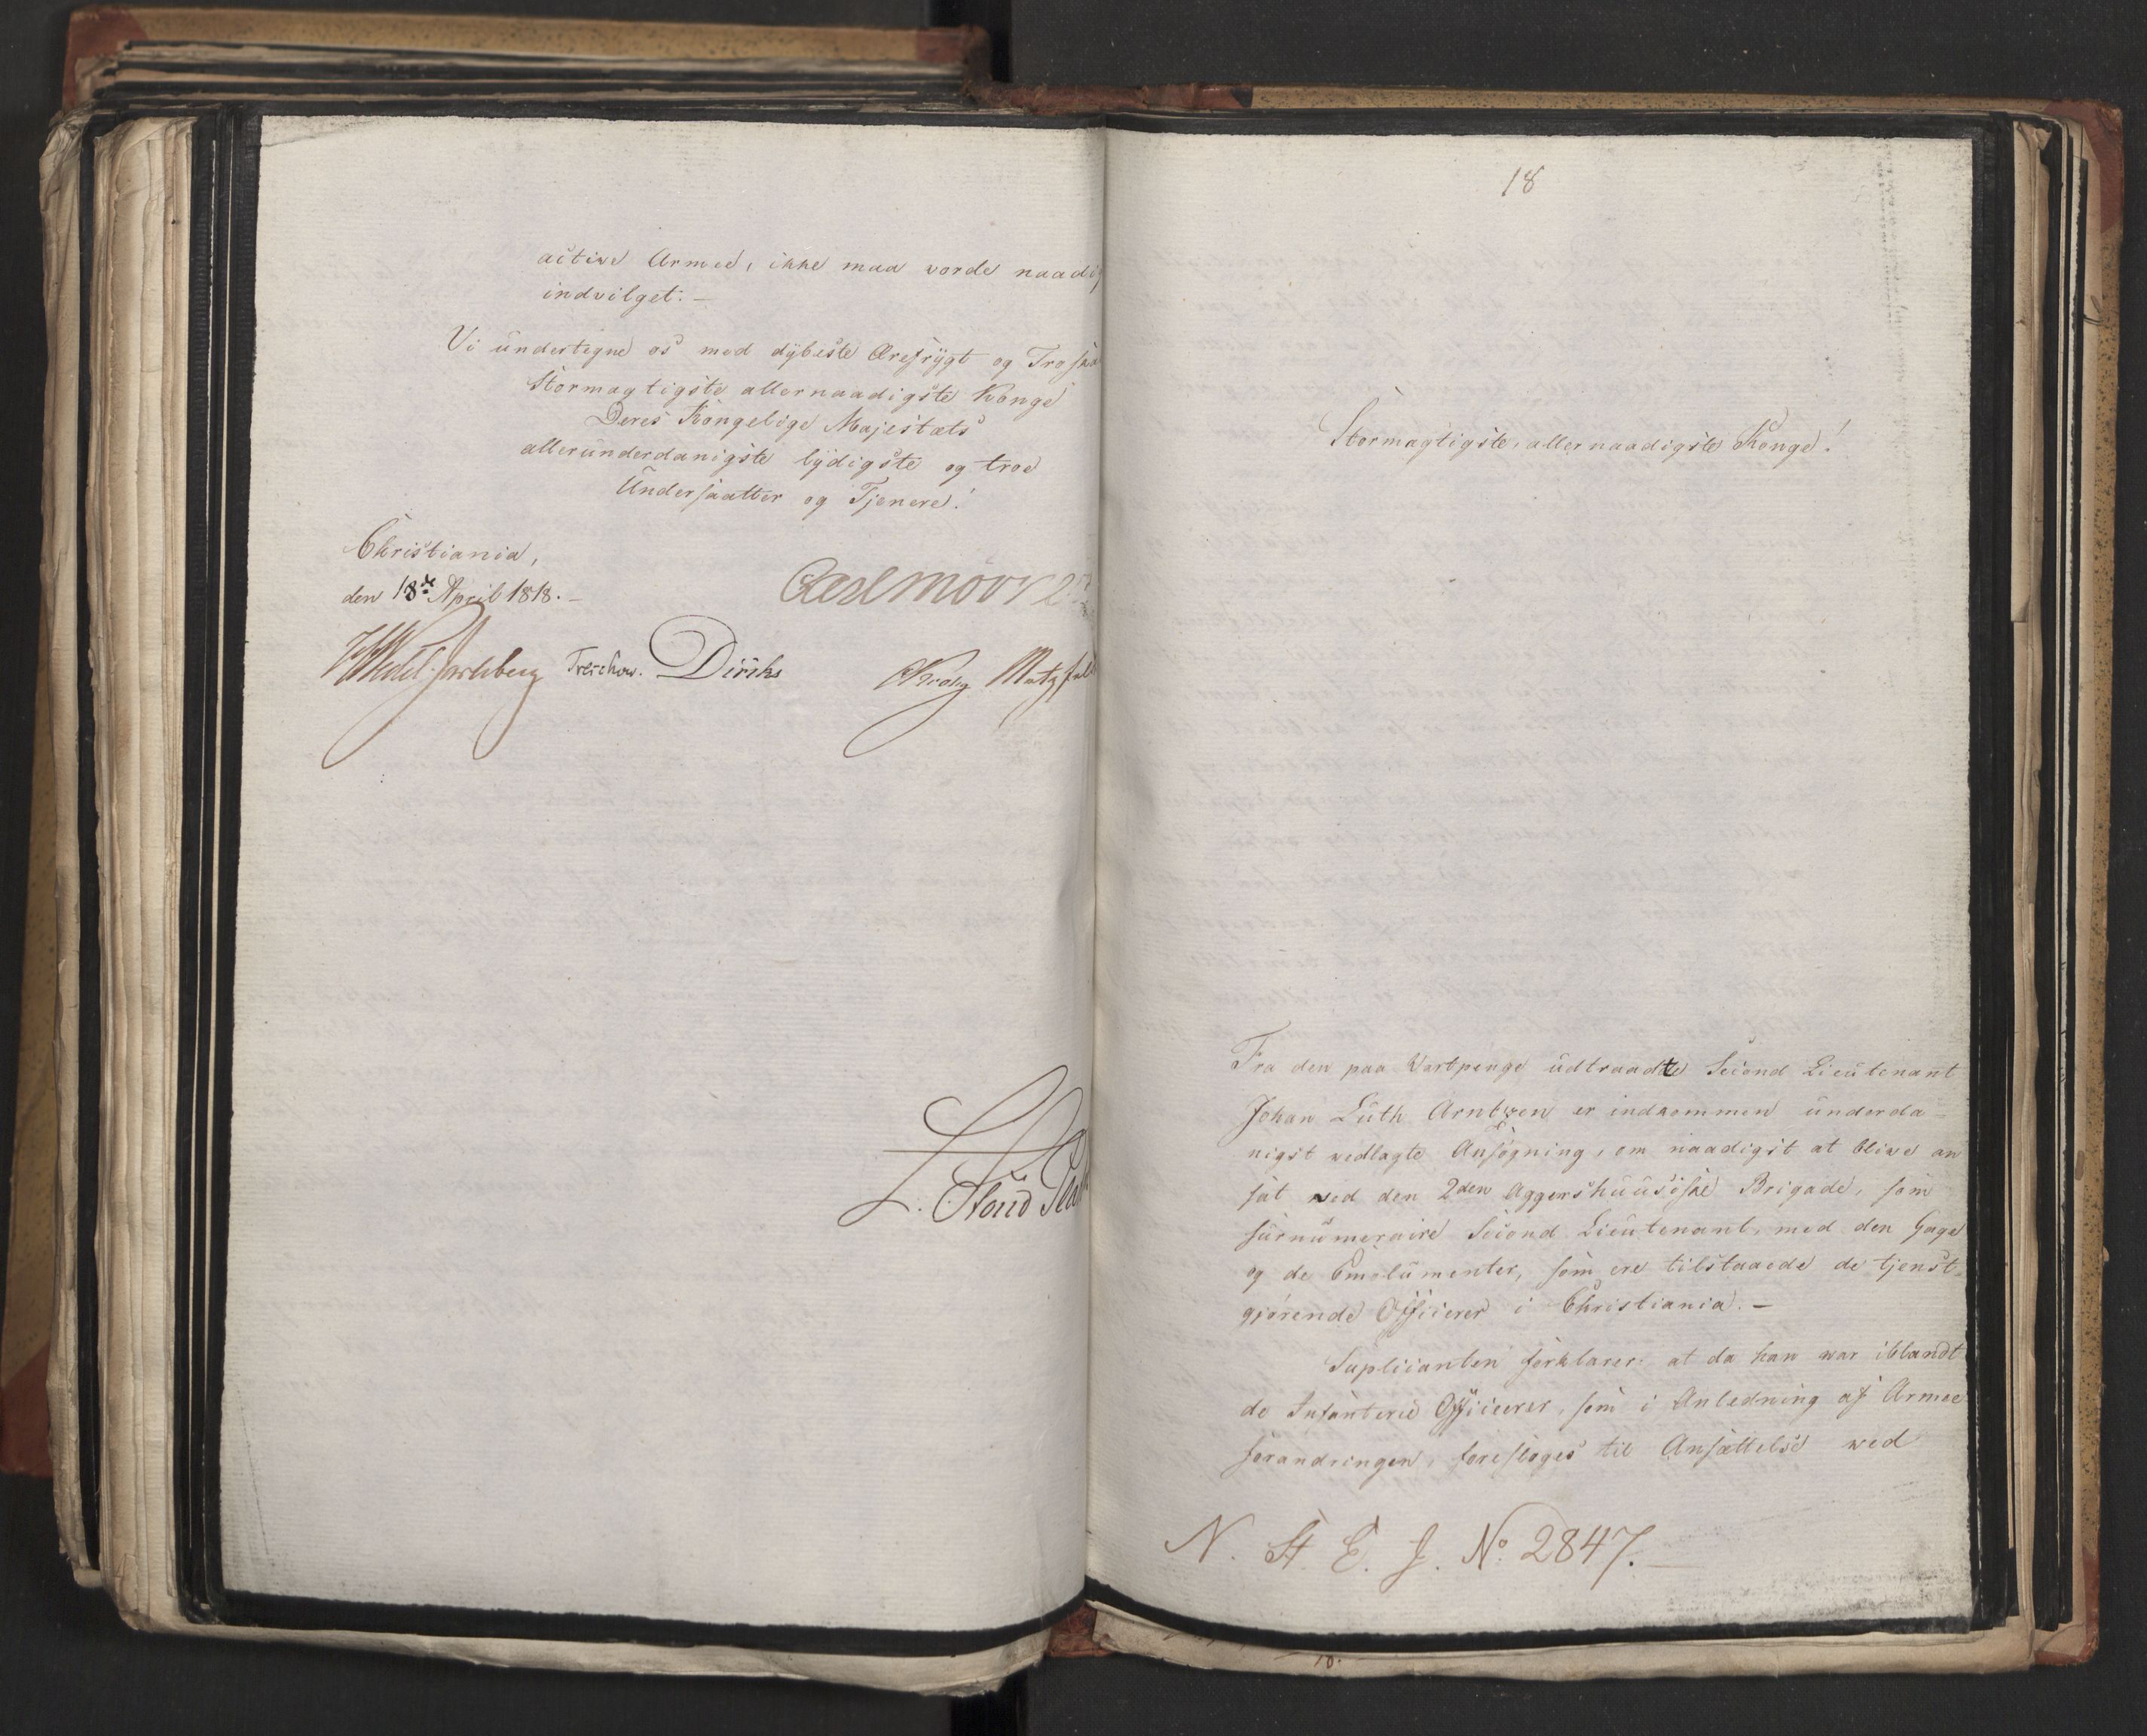 active Armee, ikke maa vorde naadig
indvilget. –
Vi undertegne os med dybeste Ærefrygt og Troska
Stormagtigste allernaadigste Konge
Deres Kongelige Majestæts
allerunderdanigste lydigste og troe
Undersaatter og Tjenere!
Christiania,
den 18de April 1818. –
Carl Mörner
HWedel-Jarlsberg Treschow. Diriks Krohg Motzfeld
L. Stoud Plat
18
Stormagtigste, allernaadigste Konge!
Fra den paa Vartpenge udtraadte Second Lieutenant
Johan Luth Arntzen er indkommen underda-
nigst vedlagte Ansøgning, om naadigst at blive an
sat ved den 2den Aggershuusiske Brigade, som
surnumeraire Second Lieutenant, med den Gage
og de Emolumenter, som ere tilstaaede de tjenst-
gjørende Officierer i Christiania. –
Suplicanten forklarer: at da han var iblandt
de Infanterie Officierer, som i Anledning af Armee
forandringen, foresloges til Ansættelse ved
N. St. E. J. No. 2847. –